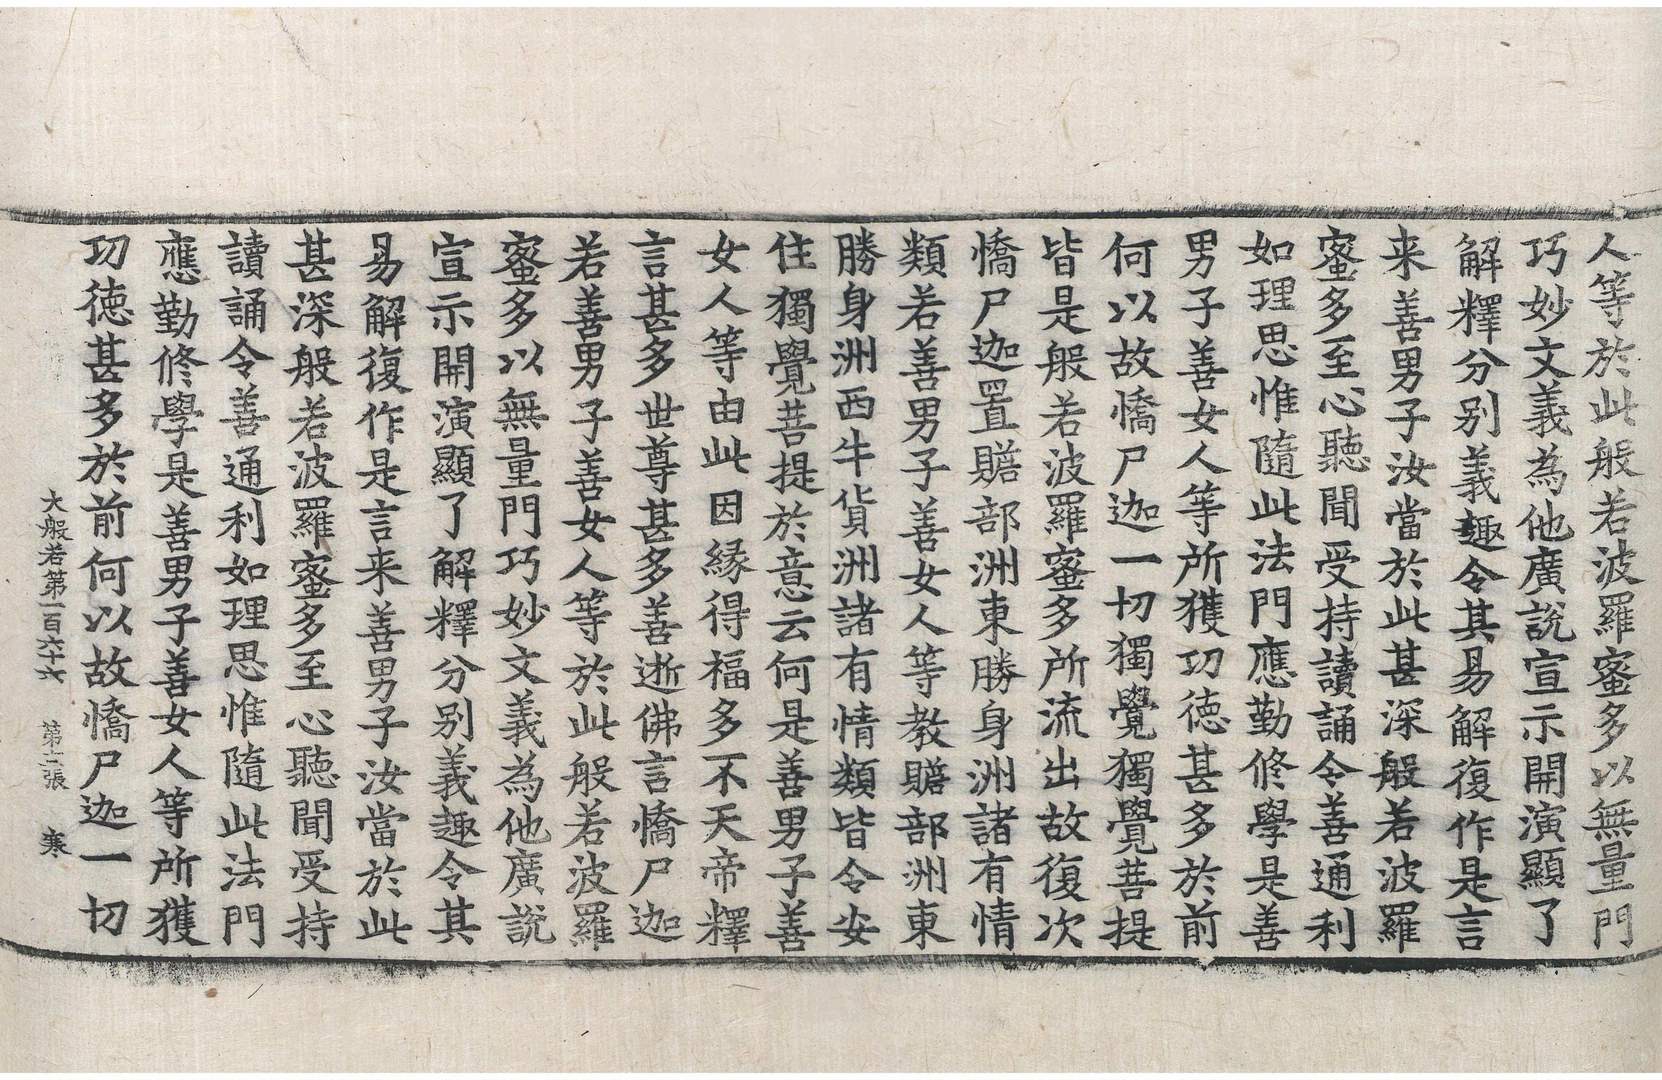 人等於此般若波羅蜜多以無量門
巧妙文義為他廣說宣示開演顯了
解釋分別義趣令其易解復作是言
来善男子汝當於此甚深般若波羅
蜜多至心聽聞受持讀誦令善通利
如理思惟隨此法門應勤修學是善
男子善女人等所獲功德甚多於前
何以故憍尸迦一切獨覺獨覺菩提
皆是般若波羅蜜多所流出故復次
憍尸迦置贍部洲東勝身洲諸有情
類若善男子善女人等教贍部洲東
勝身洲西牛貨洲諸有情類皆令安
住獨覺菩提於意云何是善男子善
女人等由此因緣得福多不天帝釋
言甚多世尊甚多善逝佛言憍尸迦
若善男子善女人等於此般若波羅
蜜多以無量門巧妙文義為他廣說
宣示開演顯了解釋分別義趣令其
易解復作是言来善男子汝當於此
甚深般若波羅蜜多至心聽聞受持
讀誦令善通利如理思惟隨此法門
應勤修學是善男子善女人等所獲
功德甚多於前何以故憍尸迦一切
大般若第一百六十六 第十二張 寒